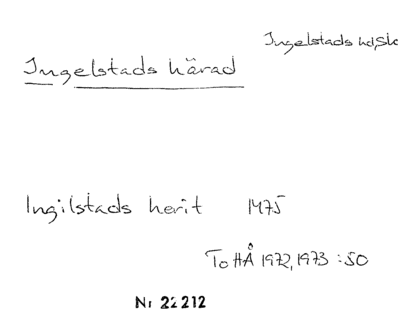 Ingelstads hd, Sk
Ingelstads härad
Ingilstads herit 1475
ToHÅ 1972, 1973 :50
Nr 22212